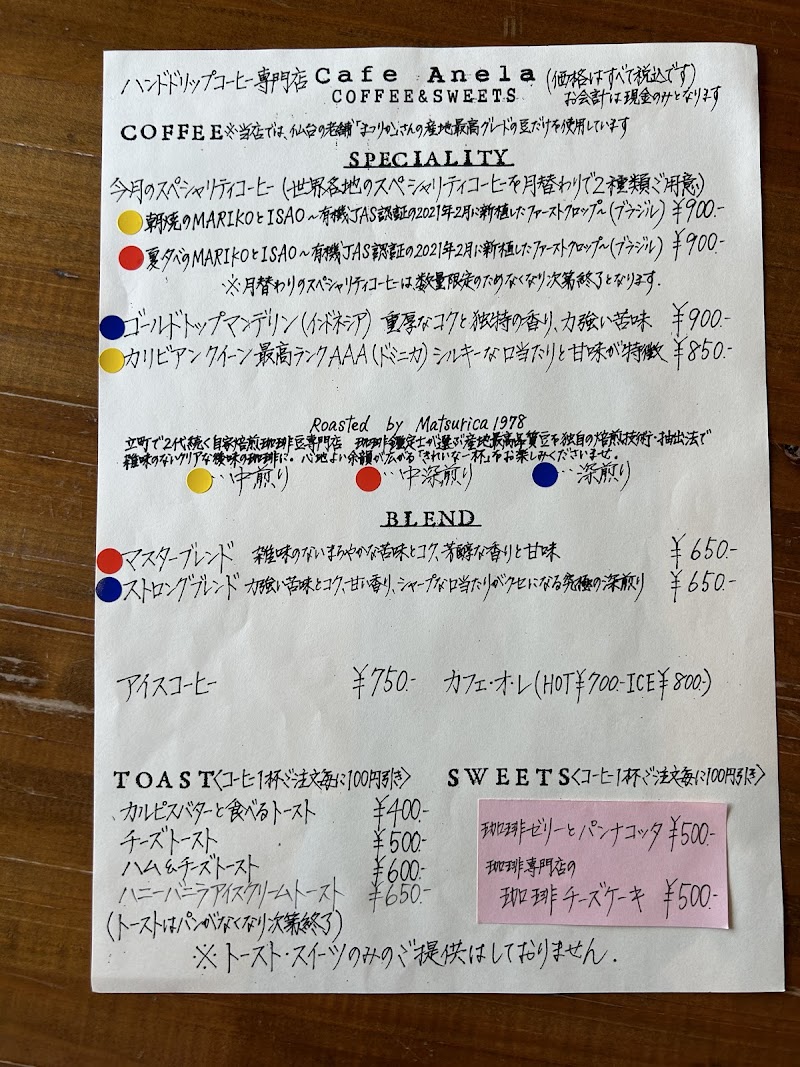 ハンドドリップコーヒー専門店 Cafe Anela (価格はすべて税込です)
COFFEE&SWEETS お会計は現金のみとなります
COFFEE ※当店では、仙台の老舗「まつりか」さんの産地最高グレードの豆だけを使用しています
SPECIALITY
今月のスペシャリティコーヒー (世界各地のスペシャリティコーヒーを月替わりで2種類ご用意)
朝焼のMARIKOとISAO~有機JAS認証の2021年2月に新植したファーストクロップ~(ブラジル) ¥900.-
夏夕べのMARIKOとISAO~有機JAS認証の2021年2月に新植したファーストクロップ~(ブラジル) ¥900.-
※月替わりのスペシャリティコーヒーは数量限定のためなくなり次第終了となります.
ゴールドトップマンデリン (インドネシア) 重厚なコクと独特の香り、力強い苦味 ¥900.-
カリビアンクイーン 最高ランクAAA (ドミニカ) シルキーな口当たりと甘味が特徴 ¥850.-
Roasted by Matsurica 1978
立町で2代続く自家焙煎珈琲豆専門店 珈琲鑑定士が選ぶ産地最高品質豆を独自の焙煎技術・抽出法で
雑味のないクリアな後味の珈琲に。心地よい余韻が広がる"きれいな一杯"をお楽しみくださいませ。
‥中煎り ‥中深煎り ‥深煎り
BLEND
マスターブレンド 雑味のないまろやかな苦味とコク、芳醇な香りと甘味 ¥650.-
ストロングブレンド 力強い苦味とコク、甘い香り、シャープな口当たりがクセになる究極の深煎り ¥650.-
アイスコーヒー ¥750.- カフェ・オ・レ (HOT¥700.-ICE¥800.-)
TOAST〈コーヒー1杯ご注文毎に100円引き〉 SWEETS〈コーヒー1杯ご注文毎に100円引き〉
カルピスバターと食べるトースト ¥400.-
チーズトースト ¥500.-
ハム&チーズトースト ¥600.-
ハニーバニラアイスクリームトースト ¥650.-
(トーストはパンがなくなり次第終了)
珈琲ゼリーとパンナコッタ ¥500.-
珈琲専門店の
珈琲チーズケーキ ¥500.-
※トースト・スイーツのみのご提供はしておりません.